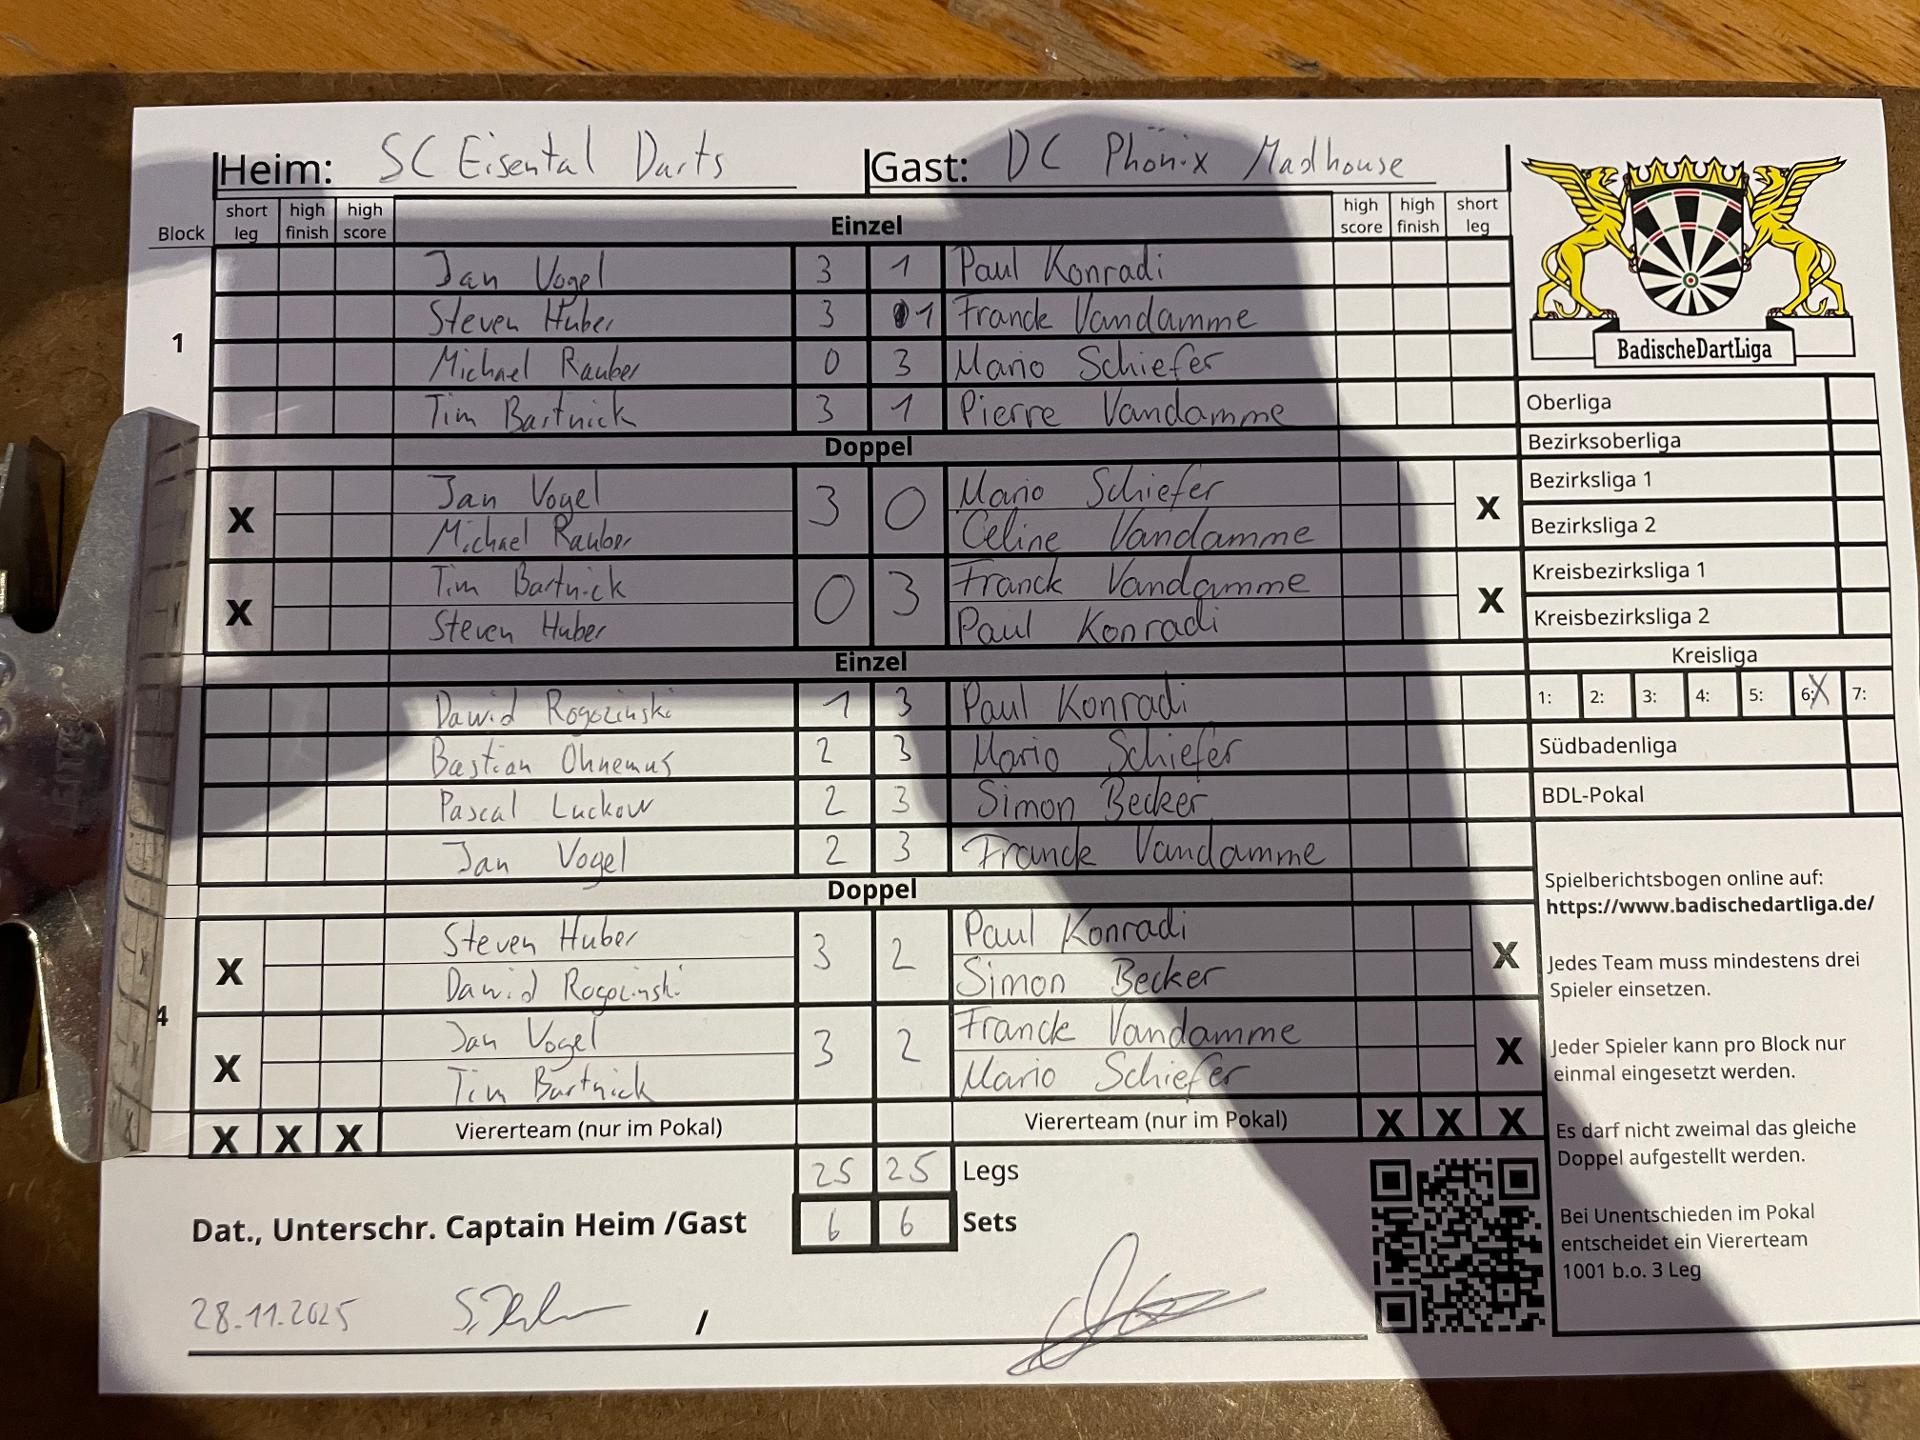 Heim: SC Eisental Darts Gast: DC Phönix Madhouse
Block short leg high finish high score Einzel high score high finish short leg
1
Jan Vogel 3 1 Paul Konradi
Steven Huber 3 1 Franck Vandamme
Michael Rauber 0 3 Mario Schiefer
Tim Bartnick 3 1 Pierre Vandamme
Doppel
X Jan Vogel 3 0 Mario Schiefer X
Michael Rauber Celine Vandamme
X Tim Bartnick 0 3 Franck Vandamme X
Steven Huber Paul Konradi
Einzel
Dawid Rogozinski 1 3 Paul Konradi
Bastian Ohnemus 2 3 Mario Schiefer
Pascal Luckow 2 3 Simon Becker
Jan Vogel 2 3 Franck Vandamme
Doppel
4
X Steven Huber 3 2 Paul Konradi X
Dawid Rogozinski Simon Becker
X Jan Vogel 3 2 Franck Vandamme X
Tim Bartnick Mario Schiefer
X X X Viererteam (nur im Pokal) Viererteam (nur im Pokal) X X X
25 25 Legs
6 6 Sets
Dat., Unterschr. Captain Heim /Gast
28.11.2025 /
BadischeDartLiga
Oberliga
Bezirksoberliga
Bezirksliga 1
Bezirksliga 2
Kreisbezirksliga 1
Kreisbezirksliga 2
Kreisliga
1: 2: 3: 4: 5: 6: X 7:
Südbadenliga
BDL-Pokal
Spielberichtsbogen online auf:
https://www.badischedartliga.de/
Jedes Team muss mindestens drei
Spieler einsetzen.
Jeder Spieler kann pro Block nur
einmal eingesetzt werden.
Es darf nicht zweimal das gleiche
Doppel aufgestellt werden.
Bei Unentschieden im Pokal
entscheidet ein Viererteam
1001 b.o. 3 Leg